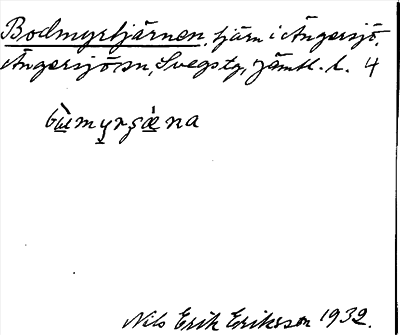 Bodmyrtjärnen, tjärn i Ängersjö,
Ängersjö sn, Svegs tg, Jämtl. l. 4
bù̲my̲rʂæ̲̀na
Nils Erik Eriksson 1932.